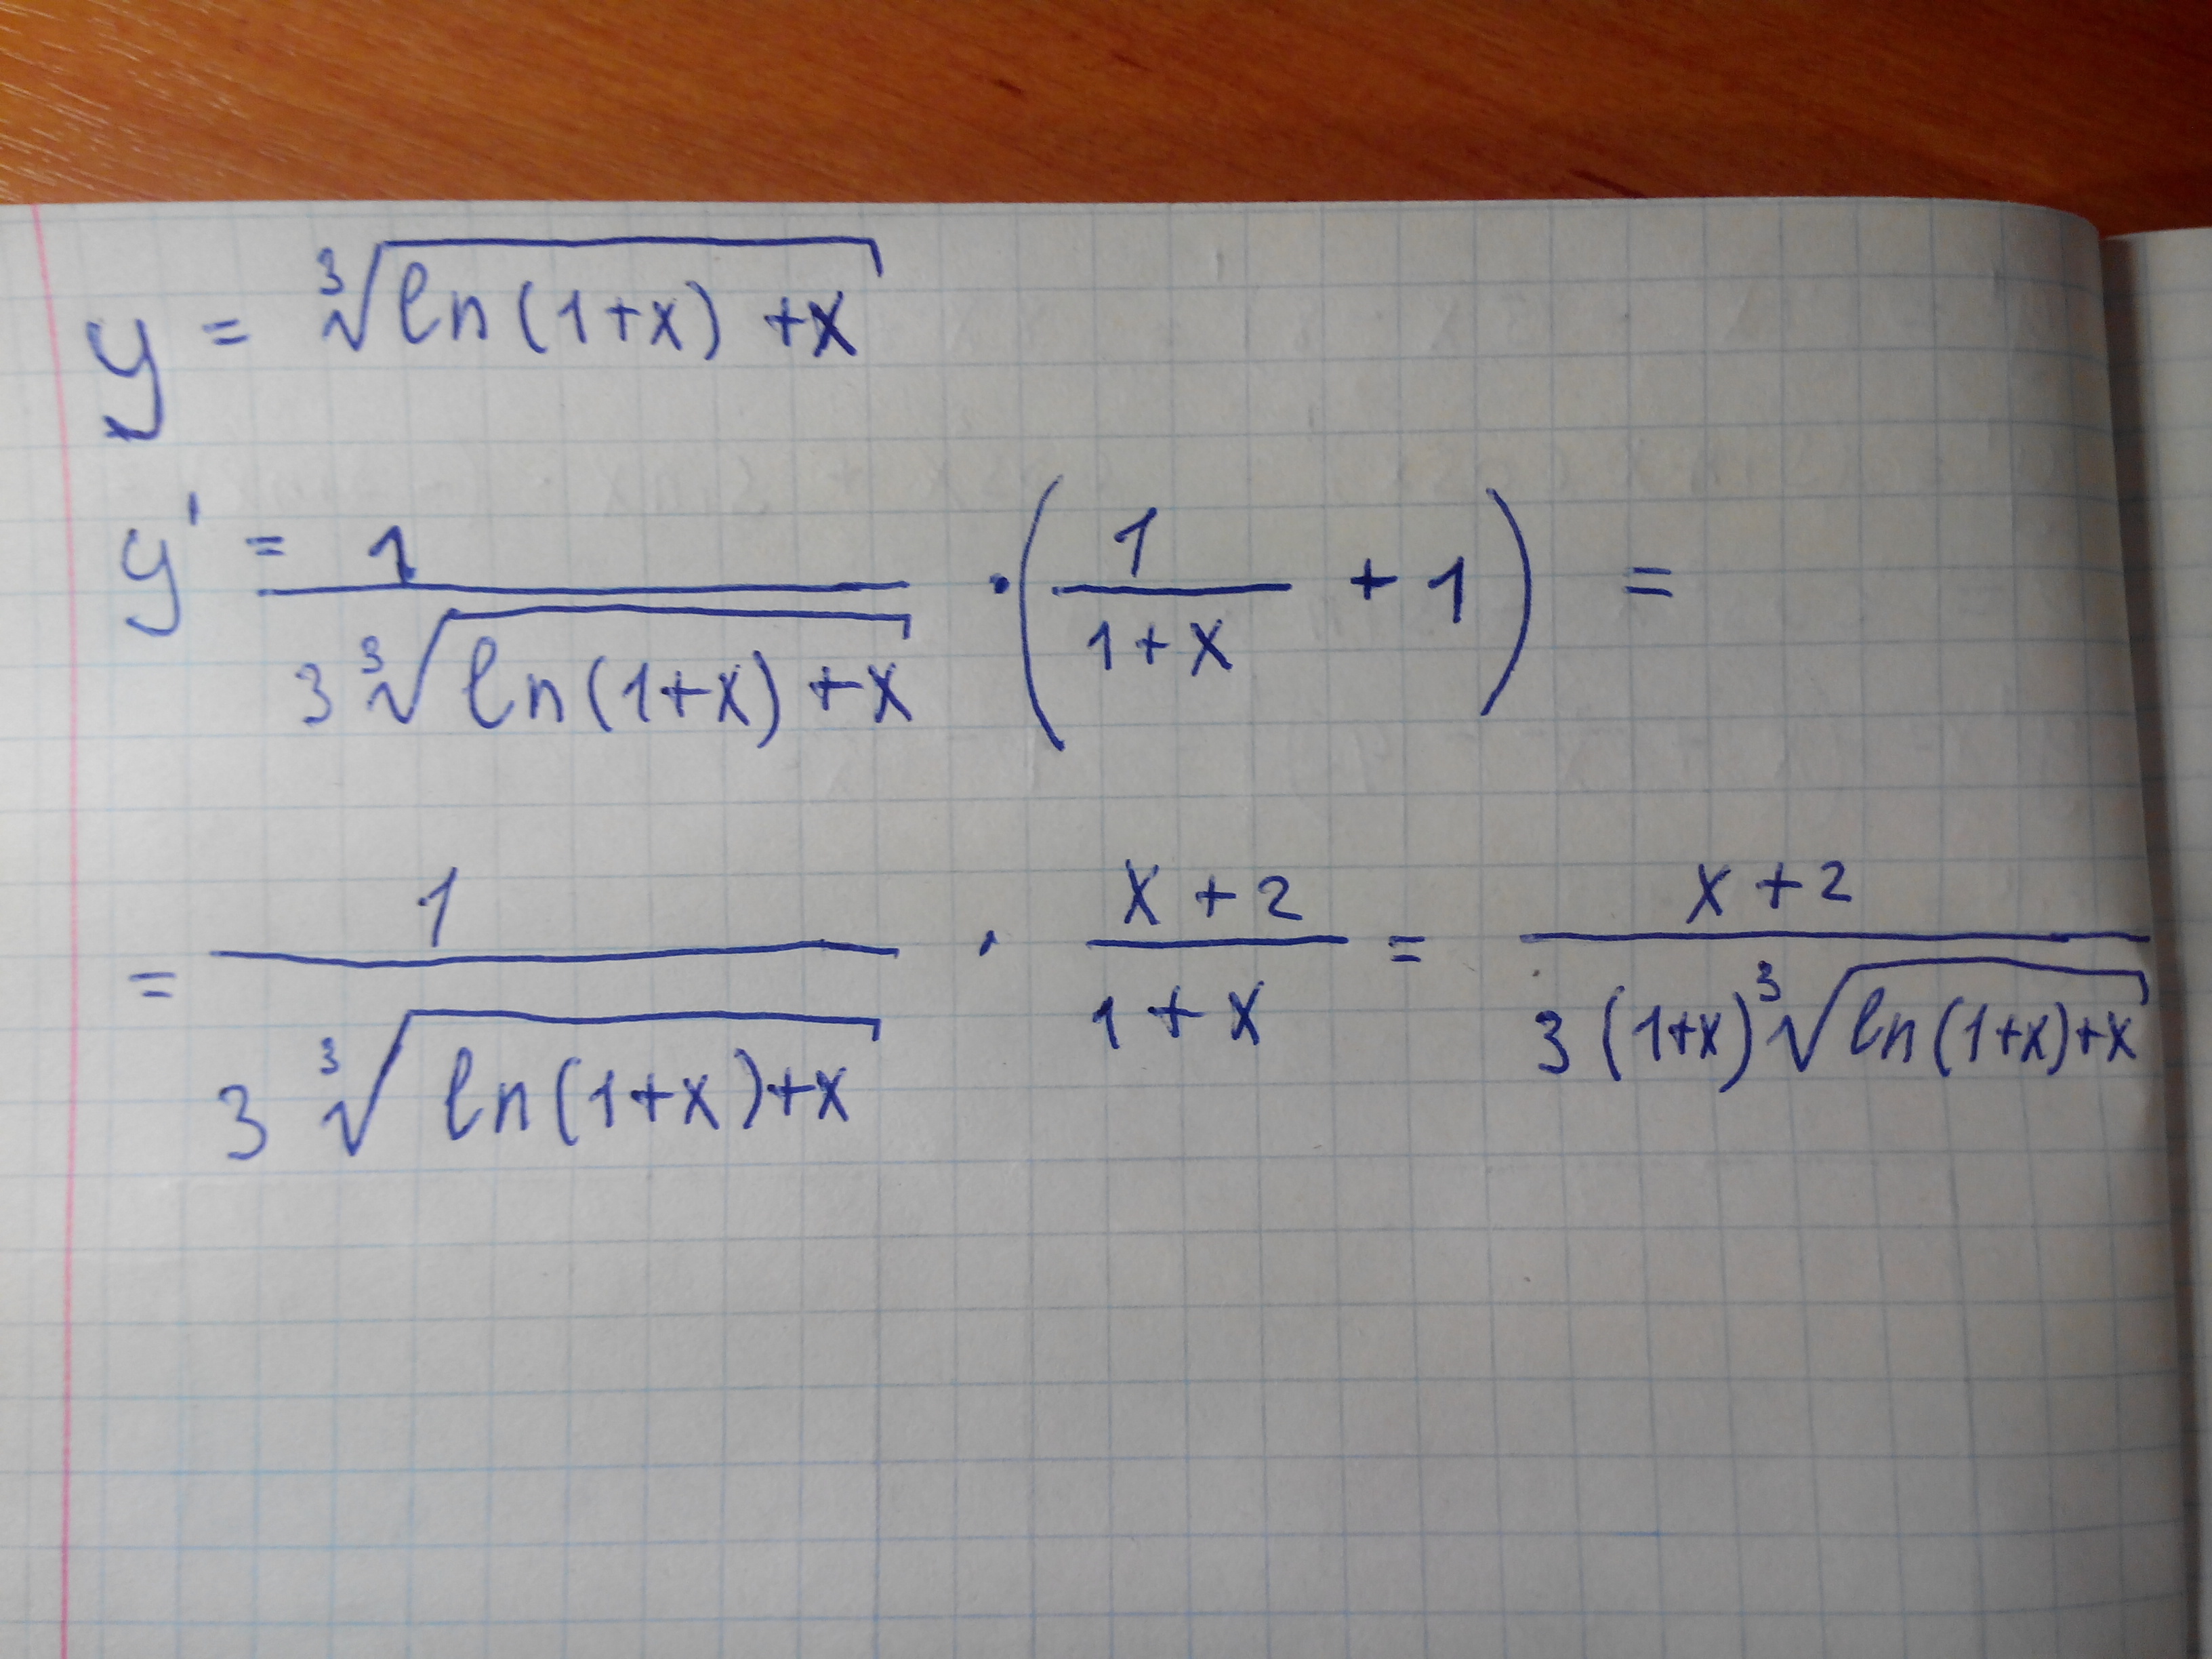 y = ∛(ln(1+x) +x)
y' = 1/(3∛(ln(1+x)+x)) · (1/(1+x) + 1) =
= 1/(3∛(ln(1+x)+x)) · (x+2)/(1+x) = (x+2)/(3(1+x)∛(ln(1+x)+x))